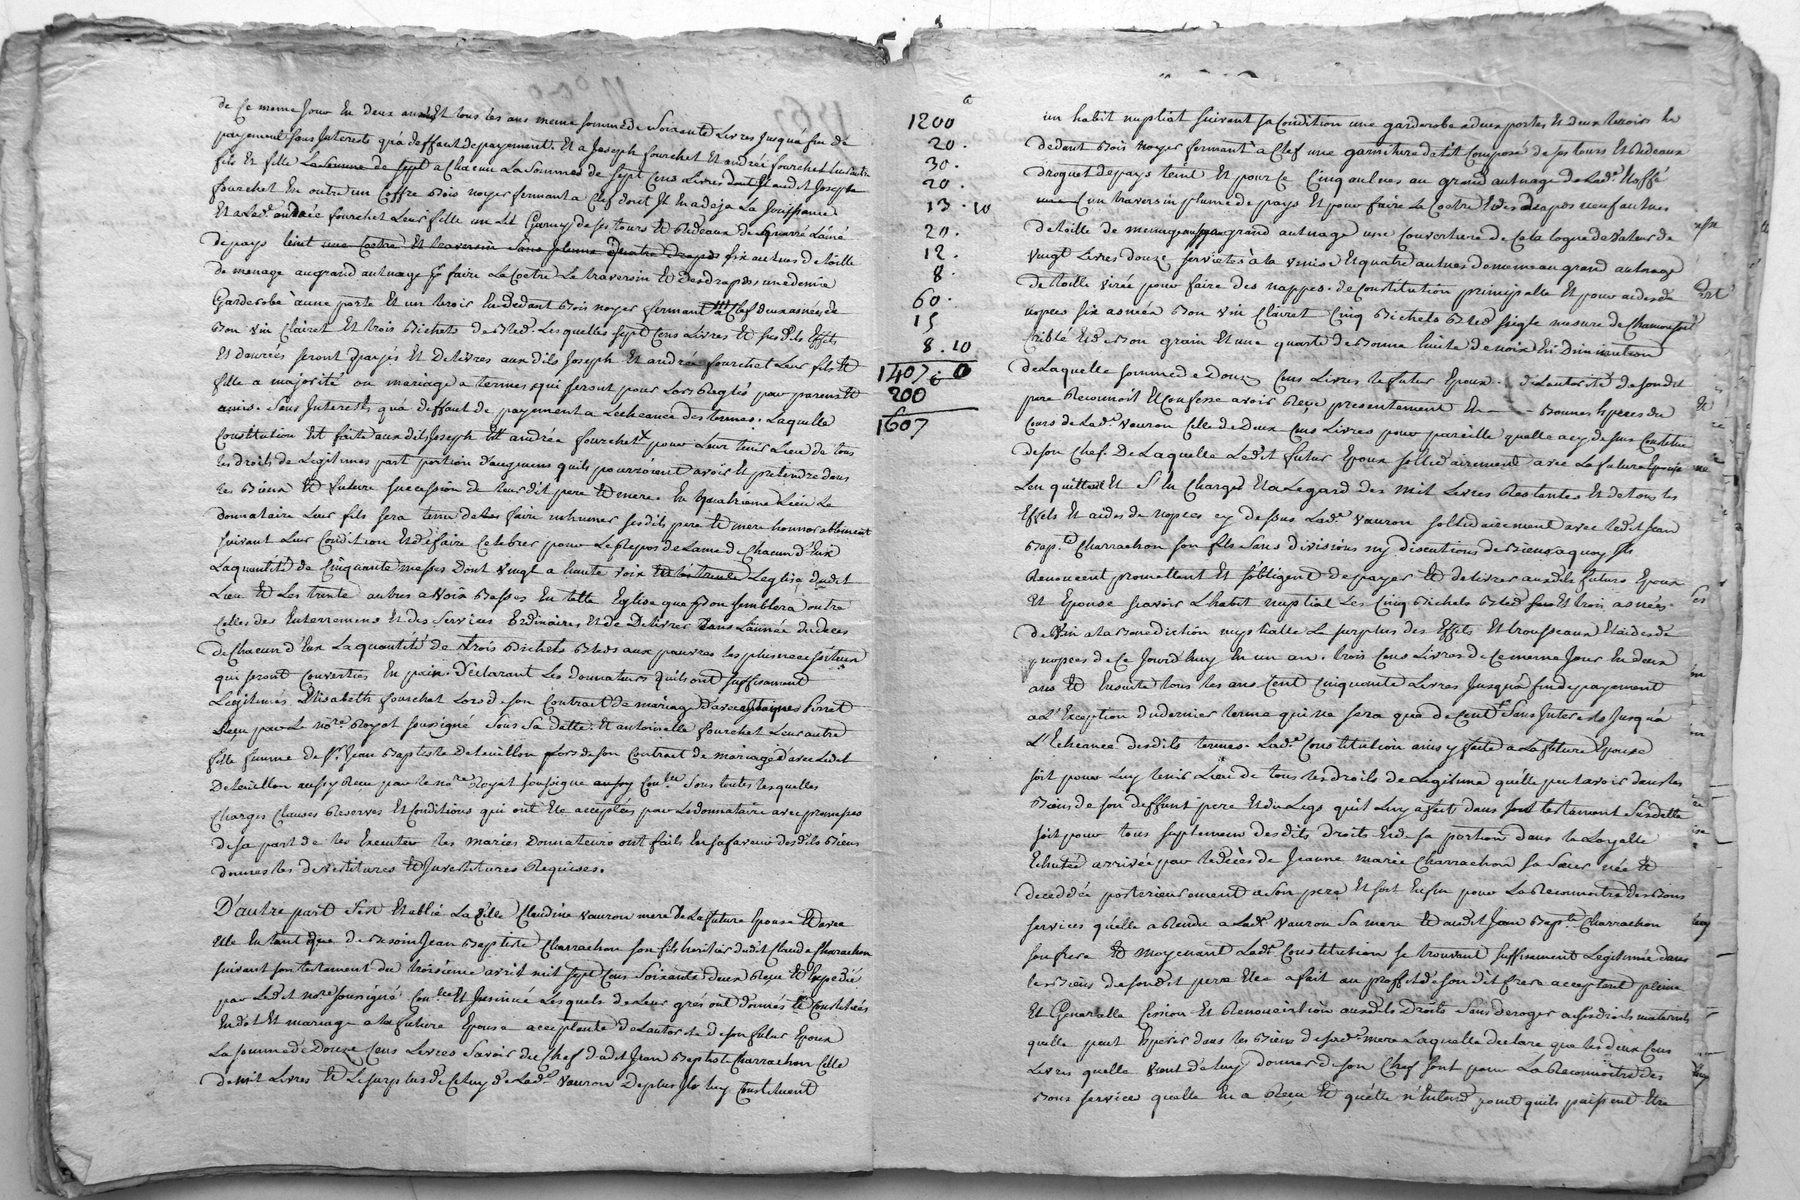 de Ce meme Jour En deux ans Et tous les ans meme somme de Soixante Livres Jusqu'a fin de
payement Sans Interests qu'a deffaut de payement. Et a Joseph fourchet Et andrée fourchet
fils Et fille La somme de sept a Chacun La Somme de Sept Cens Livres dont Et audit Joseph
fourchet En outre un Coffre Bois noyer fermant a Clef dont Il En a deja La Jouissance
Et a Lad.e andrée fourchet Leur fille un Lit Garny de ses tours Et Rideaux de
de pays teint une Coetre Et traversin Sans plume quatre draps six aulnes de toille
de menage au grand aulnage pr faire La Coetre Le traversin Et des draps, une demie
Garderobe à une porte Et un tiroir En dedant Bois noyer fermant à Clef deux asnées de
Bon vin Clairet Et trois Bichets de Bled. Lesquelles sept Cens Livres Et susdits Effets
Et danrées seront payés Et Delivrés auxdits Joseph Et andrée fourchet Leur fils Et
fille a majorité ou mariage a termes qui seront pour Lors Reglés par parents Et
amis. Sans Interests qu'a deffaut de payement a L'echeance des termes. Laquelle
Constitution Est faite auxdits Joseph Et andrée fourchet pour Leur tenir Lieu de tous
les droits de Legitimes part portion d'augment quils pourroient avoir Et pretendre dans
les Biens Et future succession de leursdit pere Et mere. En quatrieme Lieu Le
donnataire Leur fils sera tenu de Les faire inhumer sesdits pere Et mere honnorablement
suivant Leur Condition Et de faire Celebrer pour Le Repos de L'ame de Chacun d'Eux
La quantité de Cinquante messes Dont vingt a haute voix Leglise dudit
Lieu Et Les trente autres a voix Basses En telle Eglise que Bon semblera outre
Celles des Enterremens Et des Services Ordinaires Et de Delivrer dans L'année du deces
de Chacun d'Eux La quantité de trois Bichets Bleds aux pauvres les plus necessiteux
qui seront Convertis En pain. Declarant Les donnateurs qu'ils ont suffisament
Légitimés Elisabeth fourchet Lors de son Contract de mariage d'avec Perret
Reçu par Le no.re Royal soussigné Sous Sa datte. Et antoinette fourchet Leur autre
fille femme de Sr. Jean Baptiste Deteuillon Lors de son Contract de mariage d'avec Ledit
Deteuillon aussy Reçu par le no.re Royal soussigné Con.lle Sous toutes lesquelles
Charges Clauses Reserves Et Conditions qui ont Eté acceptées par Le donnataire avec promesses
de sa part de les Executer les mariés Donnateurs ont faits En sa faveur desdits Biens
donnés les devestitures Et Investitures Requises.
D'autre part S'est Etablie La dite Claudine vauron mere de La future Epouse Et avec
Elle En tant que de Besoin Jean Baptiste Charrachon son fils heritier dudit Claude Charrachon
suivant son testament du troisieme avril mil sept Cens Soixante deux Reçu Et Expedié
par Ledit no.re soussigné Con.lle Et Insinué Lesquels de Leur grés ont donnés Et Constitués
En dot Et mariage a la future Epouse acceptante de L'autorité de son futur Epoux
La somme de Douze Cens Livres Savoir du Chef dudit Jean Baptiste Charrachon Celle
de mil Livres Et Le surplus de Celuy de Lad.e vauron De plus Ils luy Constituent
1200
20.
30.
20.
13. 10
20.
12.
8.
60.
15
8. 10
1407.
200
1607
un habit nuptial suivant sa Condition une garderobe a deux portes Et deux tiroirs En
dedant Bois noyer fermant a Clef une garniture de Lit Composé de ses tours Et Rideaux
droguet de pays teint Et pour Ce Cinq aulnes au grand aulnage de Lad.e Etoffé
un traversin plume de pays Et pour faire La Coetre Et des draps neuf aulnes
de toille de menage au grand aulnage une Couverture de Catalogne de valeur de
vingt Livres douze serviettes à la venise Et quatre aulnes de meme au grand aulnage
de toille virée pour faire des nappes. de Constitution principalle Et pour aides de
nopces six asnées Bon vin Clairet Cinq Bichets Bled seigle mesure de Chamousset
Criblé Et de Bon grain Et une quarte de Bonne huile de noix En Diminution
de Laquelle somme de Douze Cens Livres le futur Epoux de L'autorité de sondit
pere Reconnoit Et Confesse avoir Reçu presentement En Bonnes Especes du
Cours de Lad.e vauron Celle de Deux Cens Livres pour pareille quelle a cy dessus Constituée
de son Chef. De Laquelle Ledit futur Epoux sollidairement avec La future Epouse
L'en quittent Et S'En Chargent Et a L'egard des mil Livres Restantes Et de tous les
Effets Et aides de nopces cy dessus Lad.e vauron sollidairement avec ledit Jean
Bap.te Charrachon son fils Sans divisions ny discutions de Biens a quoy Ils
Renoncent promettent Et s'obligent de payer Et delivrer auxdits futurs Epoux
Et Epouse savoir L'habit nuptial Les Cinq Bichets Bled Et trois asnées
de vin a la Benediction nuptialle Le surplus des Effets Et trousseaux Et aides de
nopces de Ce Jourd'huy En un an. trois Cens Livres de Ce meme Jour En deux
ans Et Ensuite tous les ans Cent Cinquante Livres Jusqu'a fin de payement
a L'Exception du dernier terme qui ne sera que de Cent Sans Interests Jusqu'a
L'Echeance desdits termes. Lad.e Constitution ainsy faite a La future Epouse
soit pour Luy tenir Lieu de tous les droits de Legitime quelle peut avoir dans les
Biens de son deffunt pere Et du Legs quil Luy a fait dans son testament susdatté
soit pour tous suplement desdits droits Et de sa portion dans la Loyalle
Echutte arrivée par le deces de Jeanne marie Charrachon sa Soeur née Et
decedée posterieurement a son pere Et soit Enfin pour La Reconnoitre des Bons
services qu'elle a Rendu a Lad.e vauron Sa mere Et audit Jean Bap.te Charrachon
son frere Et moyenant Lad.e Constitution se trouvant suffisament Legitimée dans
les Biens de sondit pere Elle a fait au proffit de son dit frere acceptant pleine
Et Generalle Cession Et Renonciation auxdits Droits Sans deroger a ses droits maternels
quelle peut Esperer dans les Biens de sad.e mere Laquelle declare que les deux Cens
Livres quelle vient de luy donner de son Chef sont pour La Reconnoitre des
Bons service quelle En a Reçu Et quelle n'Entend point quils puissent Etre